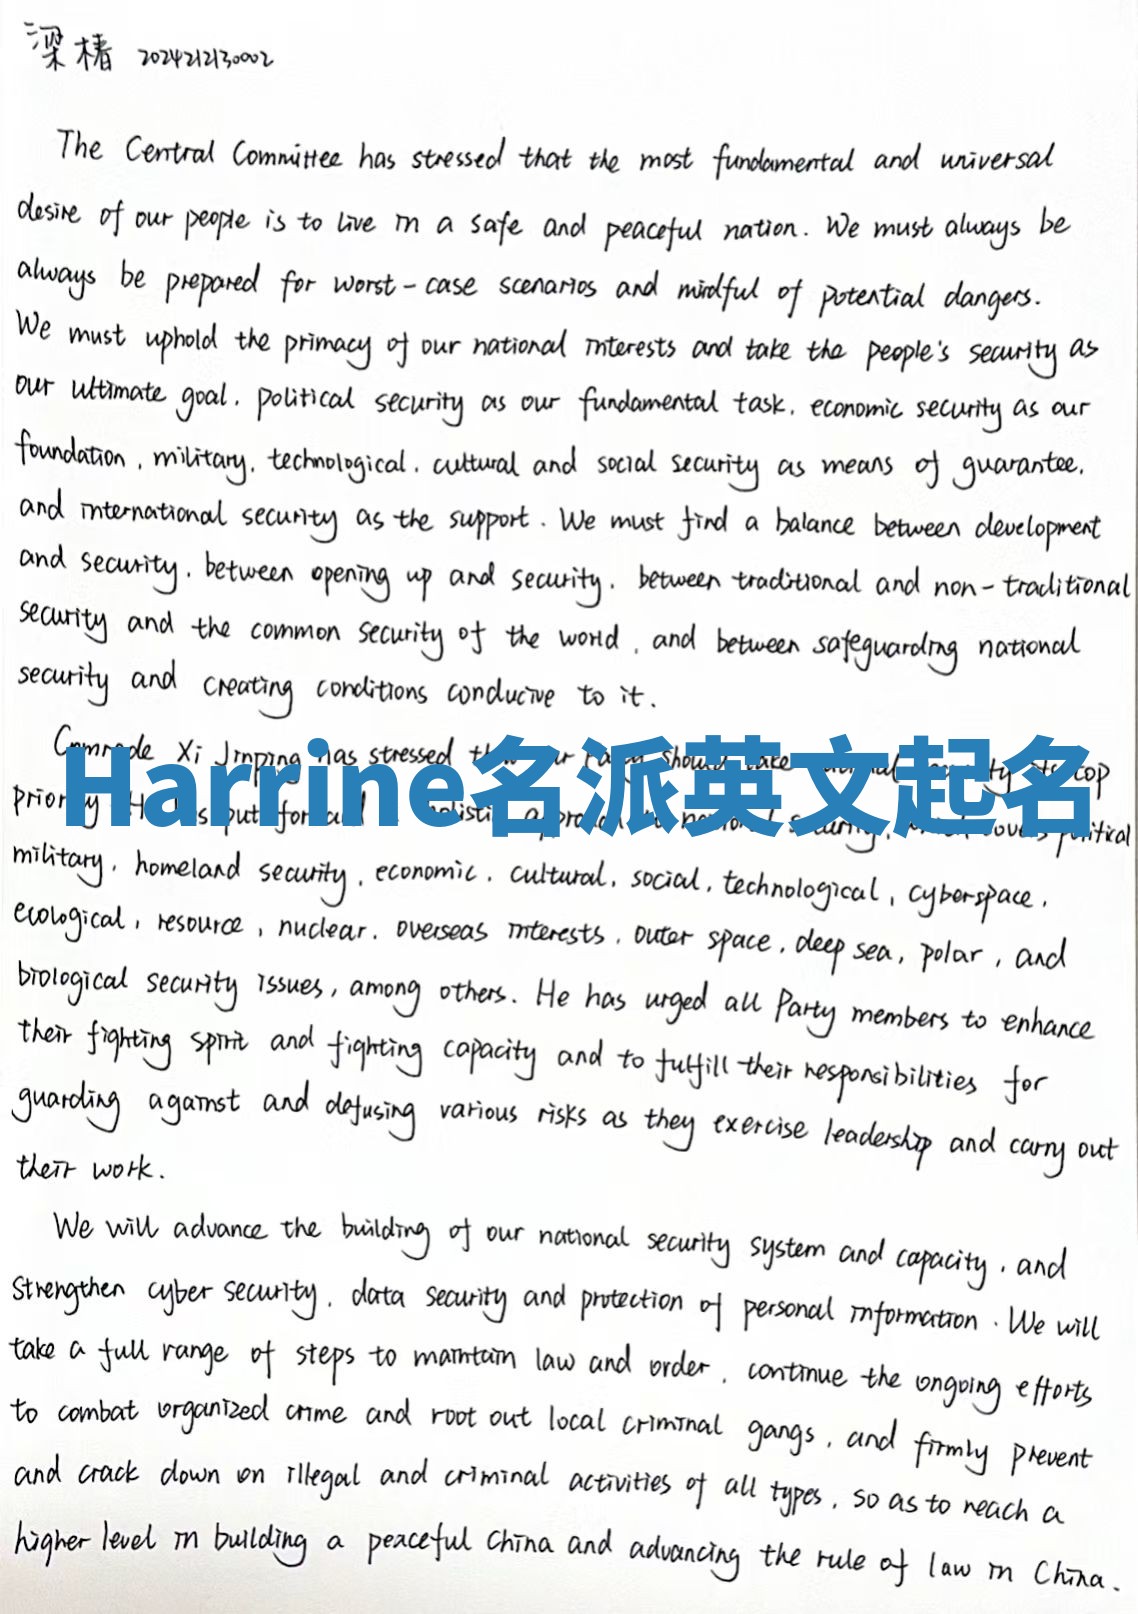 梁椿 2024212130002
The Central Committee has stressed that the most fundamental and universal
desire of our people is to live in a safe and peaceful nation. We must always be
always be prepared for worst-case scenarios and mindful of potential dangers.
We must uphold the primacy of our national interests and take the people's security as
our ultimate goal, political security as our fundamental task, economic security as our
foundation, military, technological, cultural and social security as means of guarantee,
and international security as the support. We must find a balance between development
and security, between opening up and security, between traditional and non-traditional
security and the common security of the world, and between safeguarding national
security and creating conditions conducive to it.
Comrade Xi Jinping has stressed top
Harrine名派英文起名
priority political
military, homeland security, economic, cultural, social, technological, cyberspace,
ecological, resource, nuclear, overseas interests, outer space, deep sea, polar, and
biological security issues, among others. He has urged all Party members to enhance
their fighting spirit and fighting capacity and to fulfill their responsibilities for
guarding against and defusing various risks as they exercise leadership and carry out
their work.
We will advance the building of our national security system and capacity, and
strengthen cyber security, data security and protection of personal information. We will
take a full range of steps to maintain law and order, continue the ongoing efforts
to combat organized crime and root out local criminal gangs, and firmly prevent
and crack down on illegal and criminal activities of all types, so as to reach a
higher level in building a peaceful China and advancing the rule of law in China.